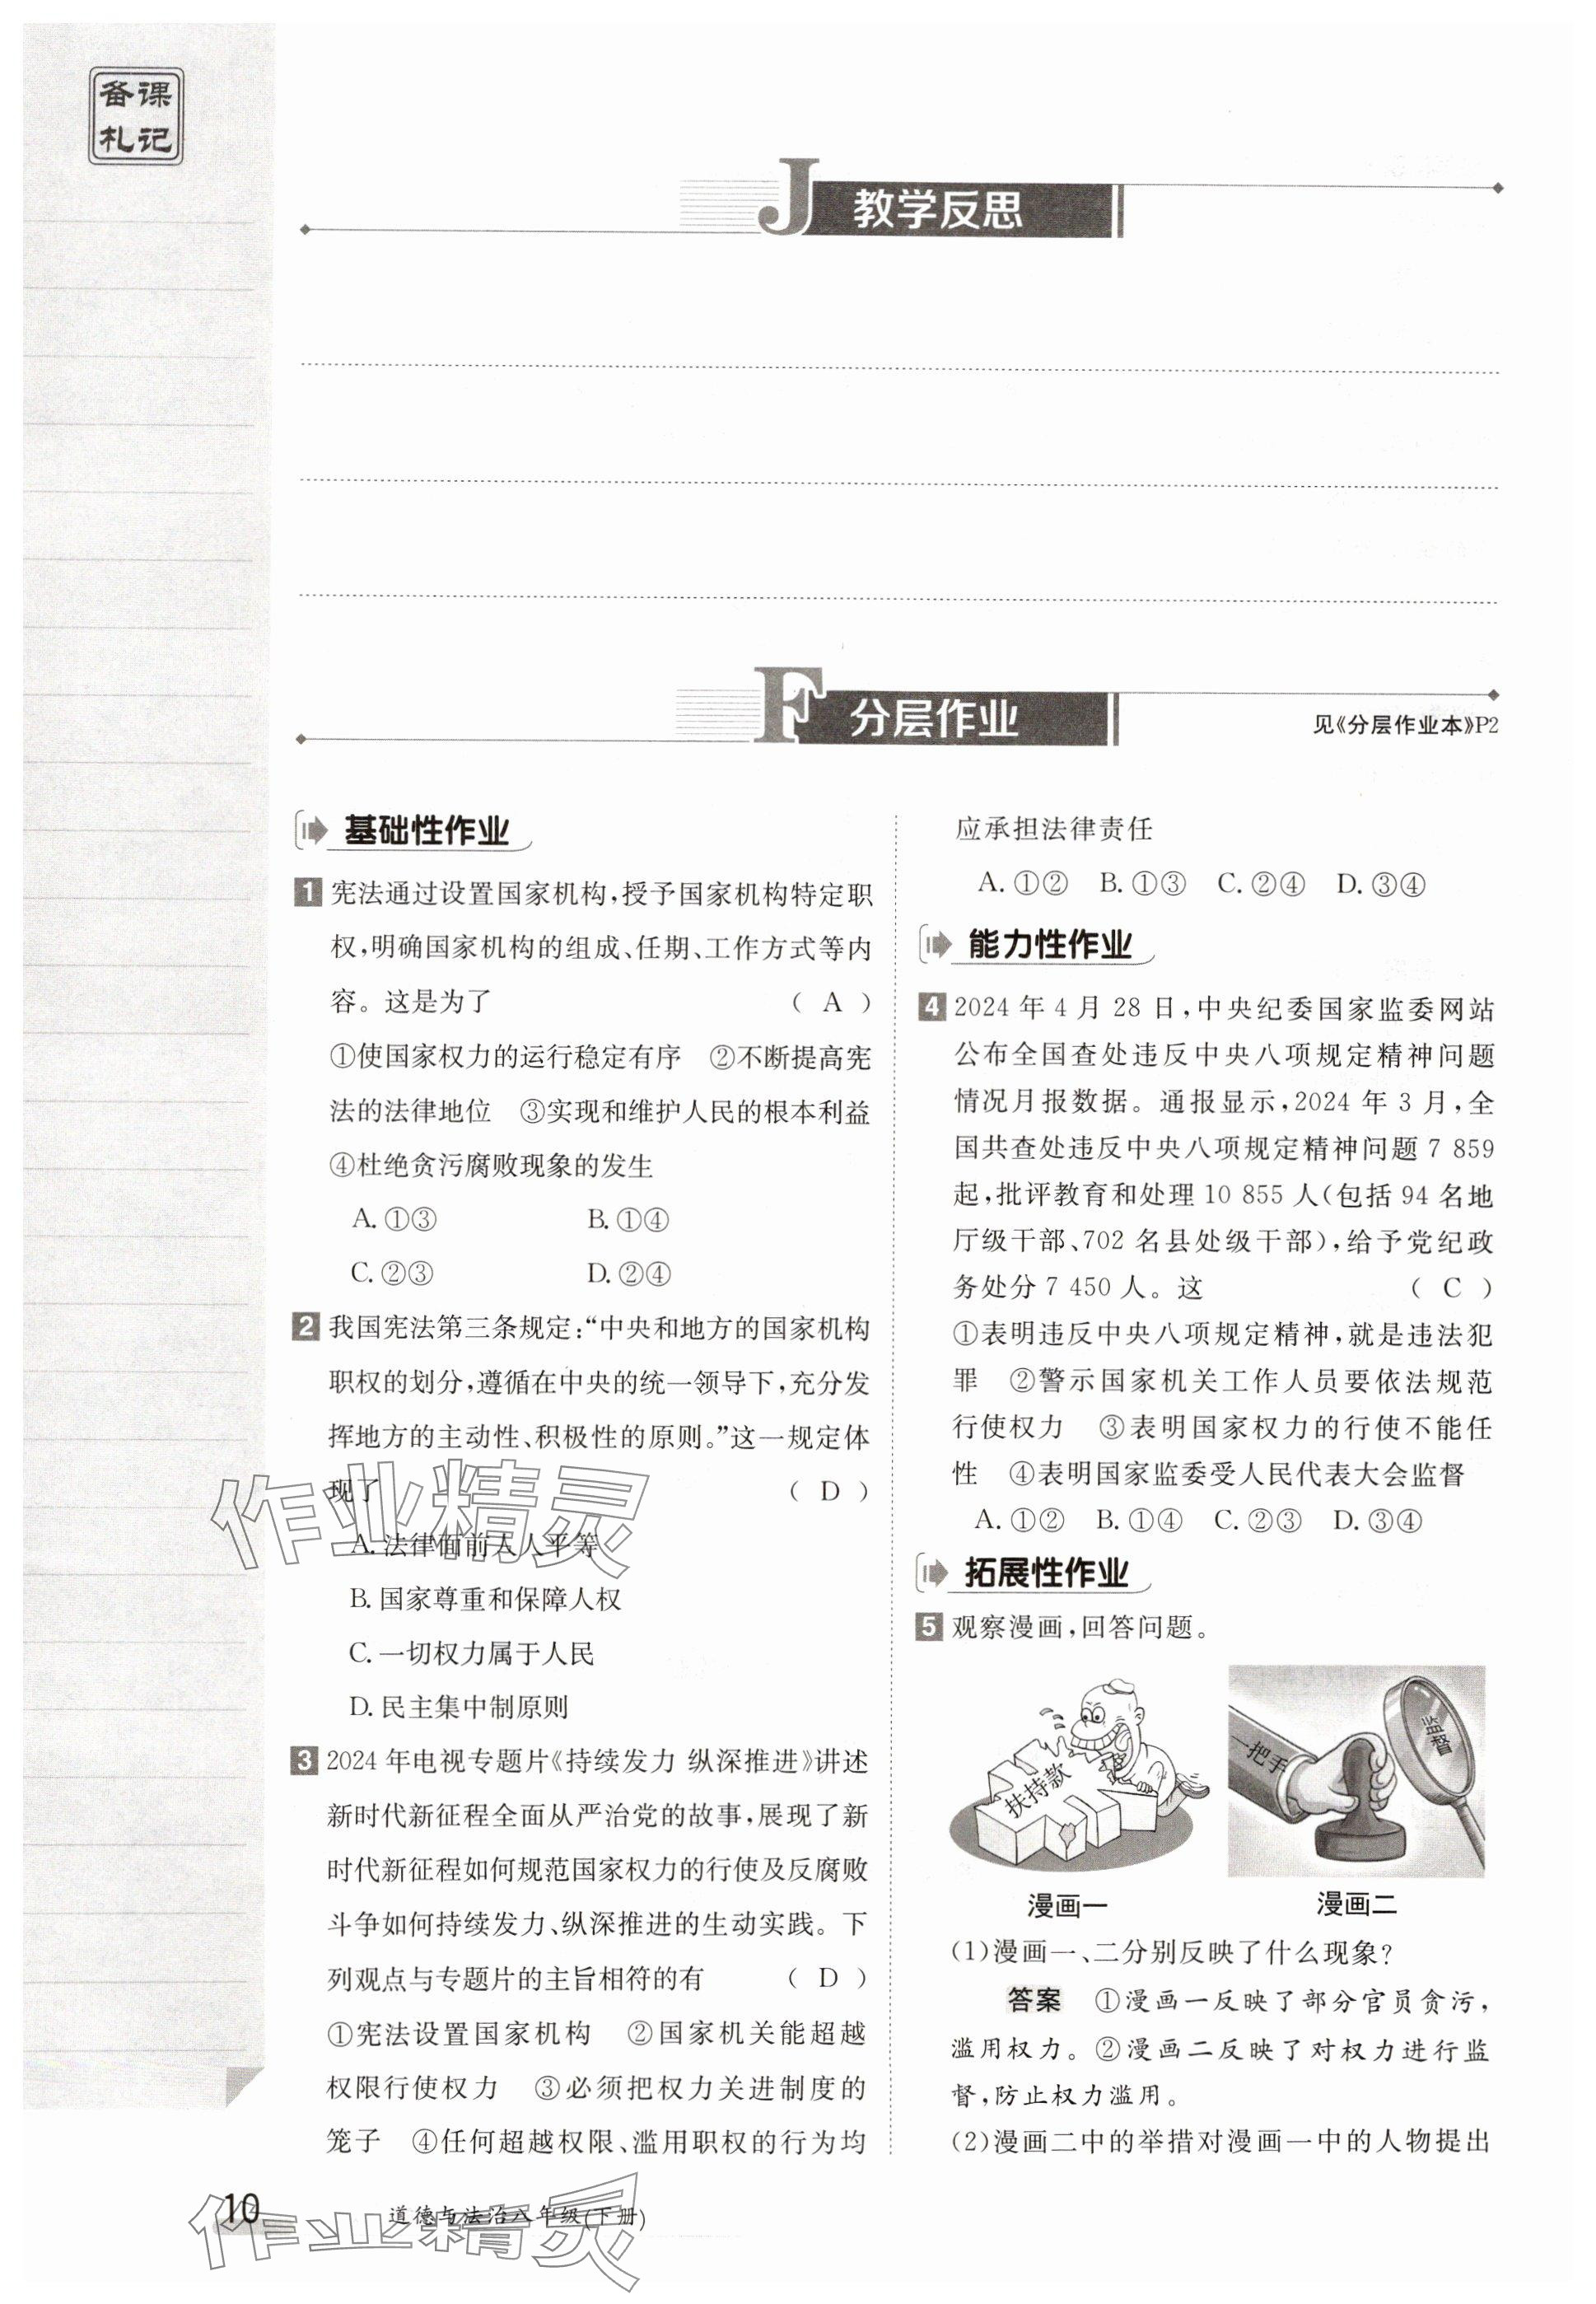 备课
札记
J 教学反思
F 分层作业
见《分层作业本》P2
基础性作业
1 宪法通过设置国家机构,授予国家机构特定职
权,明确国家机构的组成、任期、工作方式等内
容。这是为了 ( A )
①使国家权力的运行稳定有序 ②不断提高宪
法的法律地位 ③实现和维护人民的根本利益
④杜绝贪污腐败现象的发生
A. ①③ B. ①④
C. ②③ D. ②④
2 我国宪法第三条规定:“中央和地方的国家机构
职权的划分,遵循在中央的统一领导下,充分发
挥地方的主动性、积极性的原则。”这一规定体
现了 ( D )
A. 法律面前人人平等
B. 国家尊重和保障人权
C. 一切权力属于人民
D. 民主集中制原则
3 2024 年电视专题片《持续发力 纵深推进》讲述
新时代新征程全面从严治党的故事,展现了新
时代新征程如何规范国家权力的行使及反腐败
斗争如何持续发力、纵深推进的生动实践。下
列观点与专题片的主旨相符的有 ( D )
①宪法设置国家机构 ②国家机关能超越
权限行使权力 ③必须把权力关进制度的
笼子 ④任何超越权限、滥用职权的行为均
应承担法律责任
A. ①② B. ①③ C. ②④ D. ③④
能力性作业
4 2024 年 4 月 28 日,中央纪委国家监委网站
公布全国查处违反中央八项规定精神问题
情况月报数据。通报显示,2024 年 3 月,全
国共查处违反中央八项规定精神问题 7 859
起,批评教育和处理 10 855 人(包括 94 名地
厅级干部、702 名县处级干部),给予党纪政
务处分 7 450 人。这 ( C )
①表明违反中央八项规定精神,就是违法犯
罪 ②警示国家机关工作人员要依法规范
行使权力 ③表明国家权力的行使不能任
性 ④表明国家监委受人民代表大会监督
A. ①② B. ①④ C. ②③ D. ③④
拓展性作业
5 观察漫画,回答问题。
扶持款
一把手
监督
漫画一 漫画二
(1)漫画一、二分别反映了什么现象?
答案 ①漫画一反映了部分官员贪污,
滥用权力。②漫画二反映了对权力进行监
督,防止权力滥用。
(2)漫画二中的举措对漫画一中的人物提出
10 道德与法治八年级(下册)
作业精灵
作业精灵